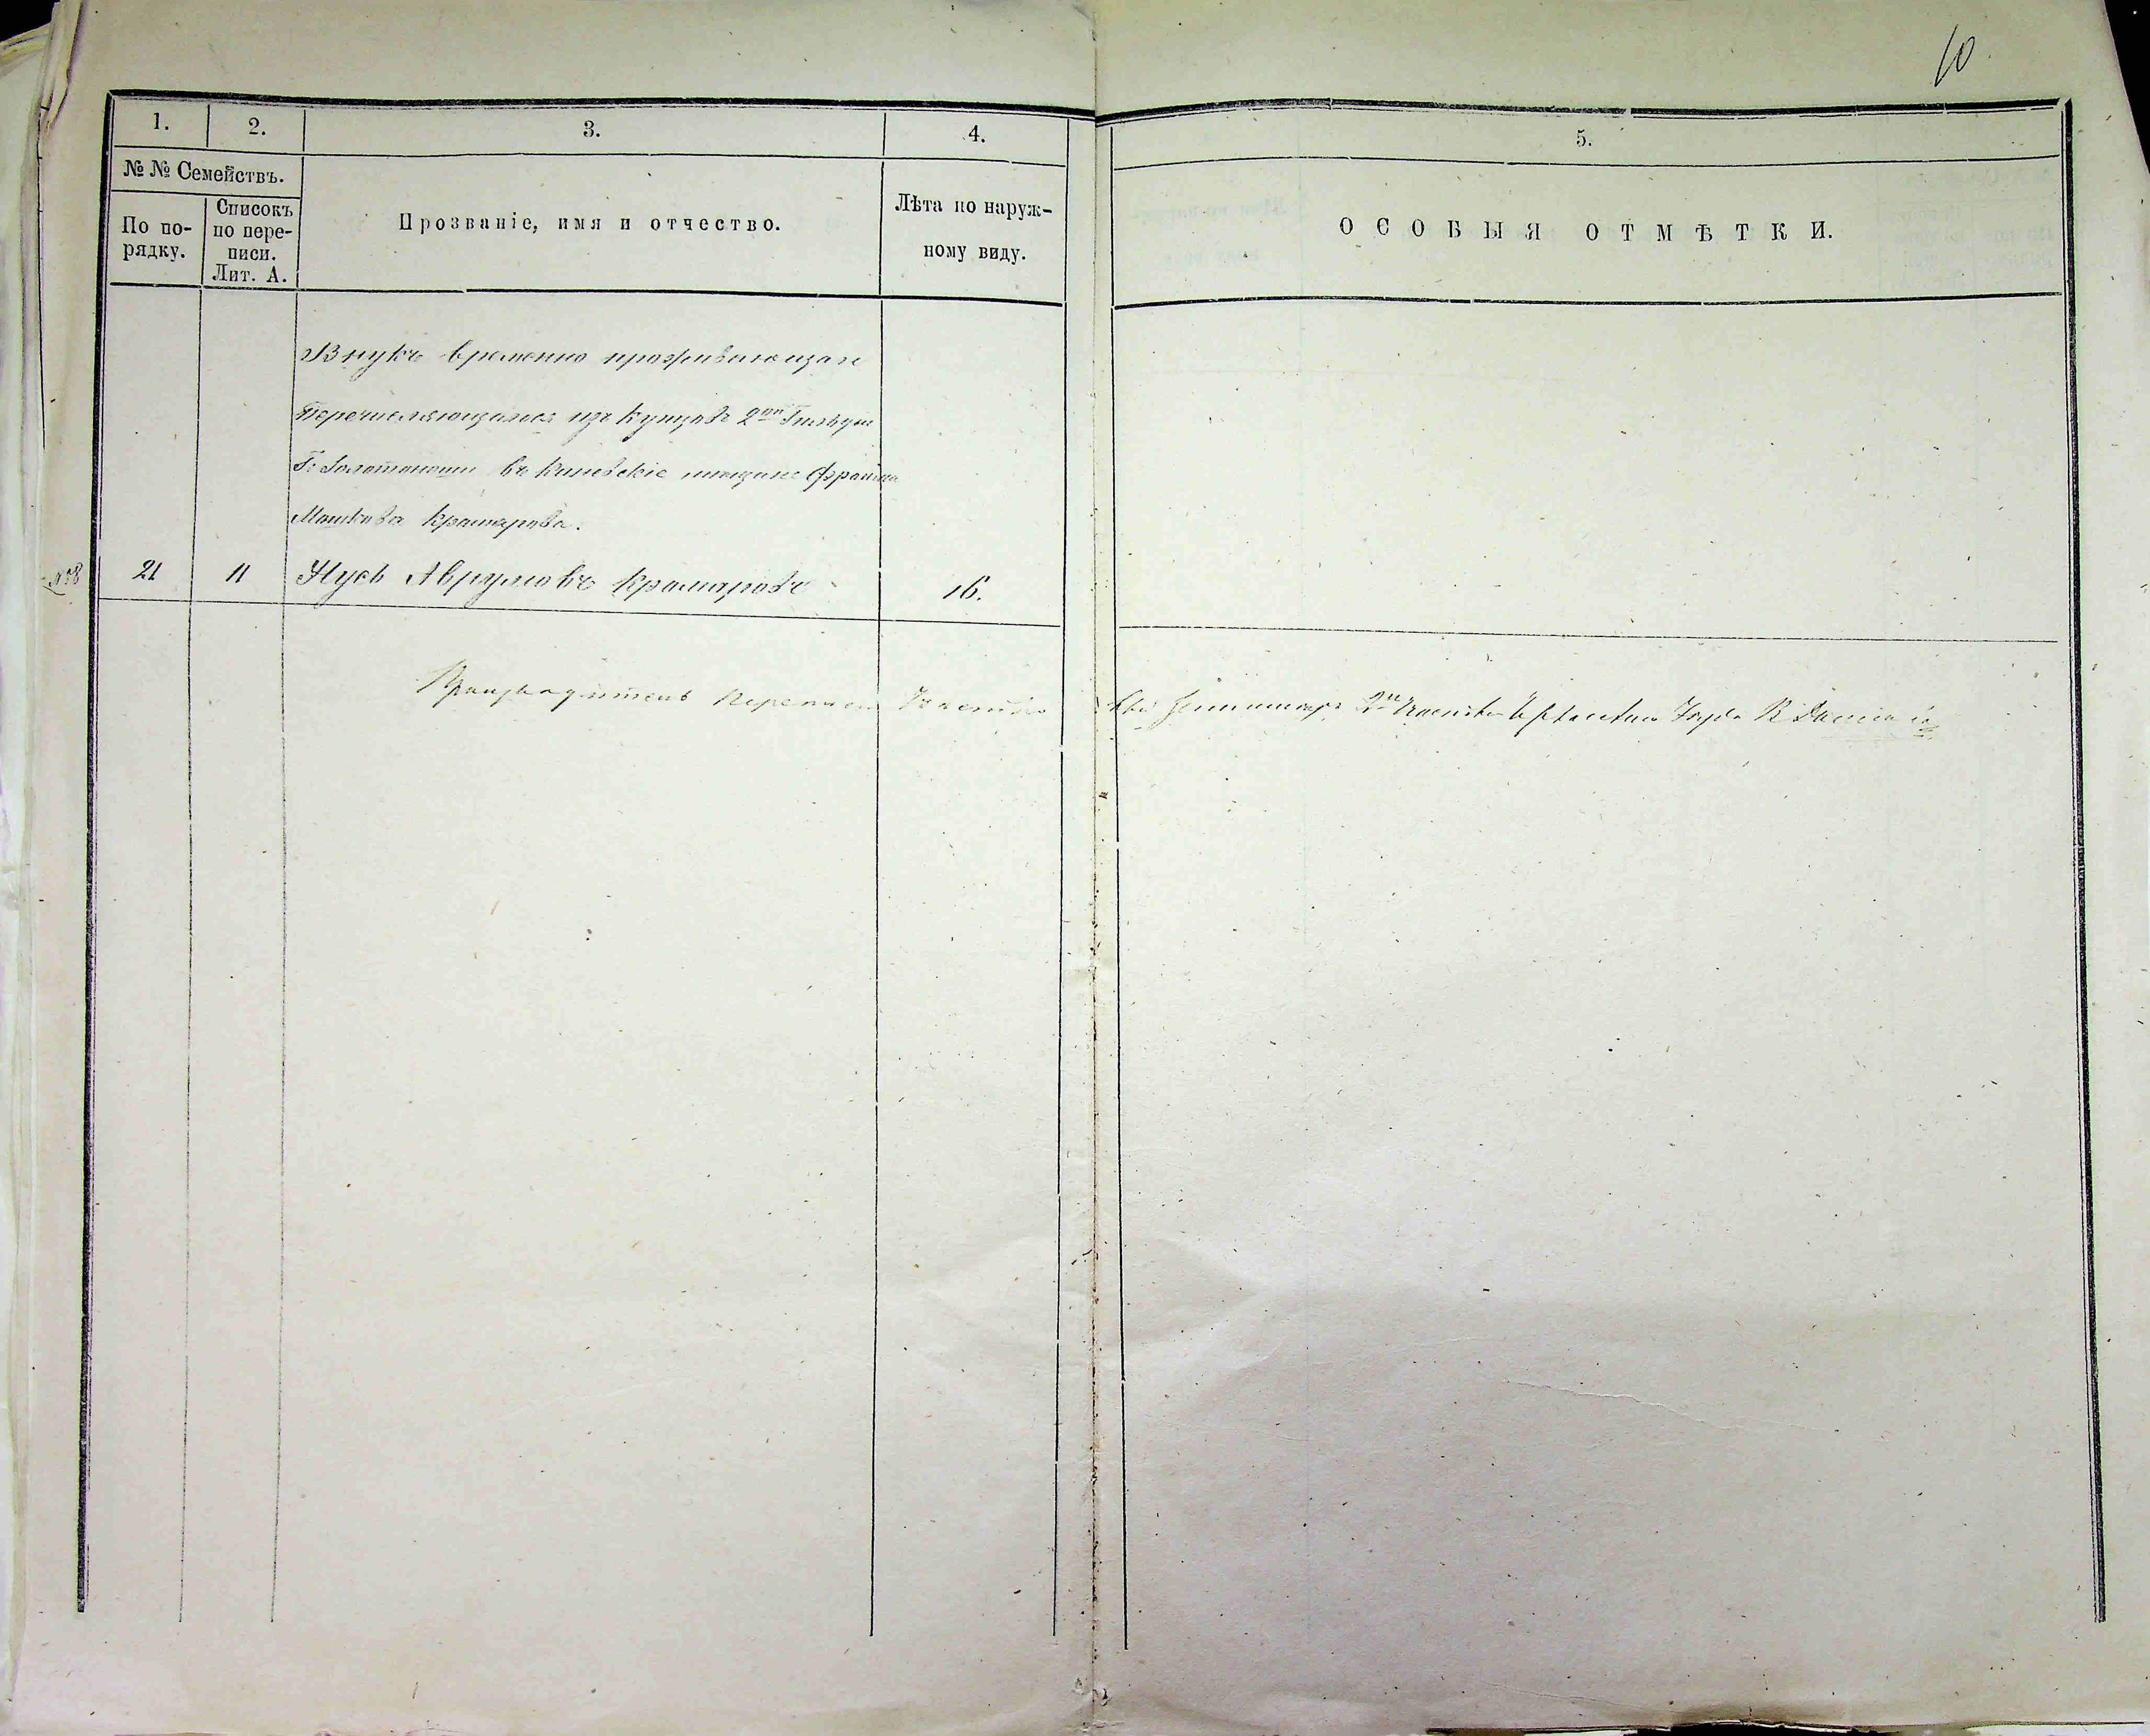 10
1.
2.
3.
4.
5.
№ № Семействъ.
По по-
рядку.
Списокъ
по пере-
писи.
Лит. А.
Прозваніе, имя и отчество.
Лѣта по наруж-
ному виду.
ОСОБЫЯ ОТМѢТКИ.
Внукъ временно проживающаго
Перечисляющагося изъ купцовъ 2ой Гильдіи
Г: Золотоноши въ Кіевскіе мещане
Мошкова Крамарова.
№8 21 11 Нусь Аврумовъ Крамаровъ 16.
Производитель переписи 2го Участка